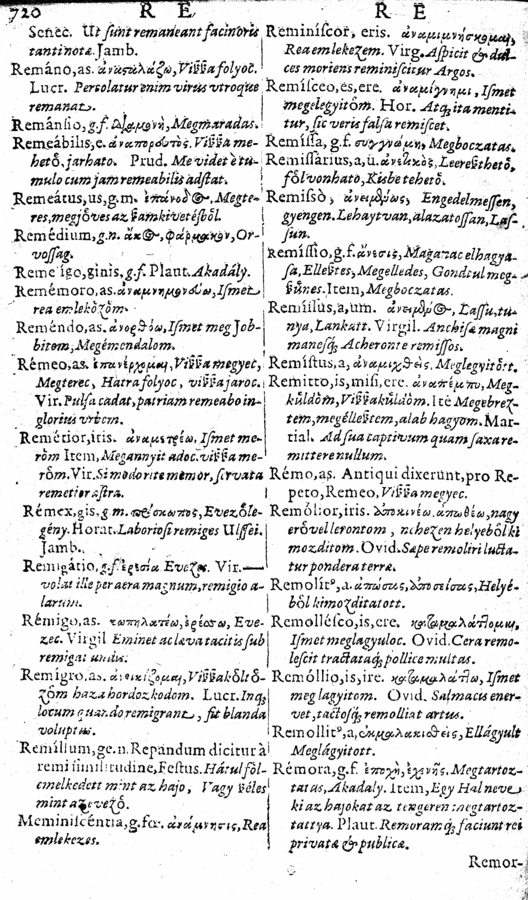 720 R E R E
Senec. Ut sunt remaneant facinoris
tanti notæ. Jamb.
Remāno, as. ἀναςαλάζω, Viſſa folyoc.
Lucr. Percolatur enim virus utroque
remanat.
Remānsio, g.f. Διαμονὴ, Megmaradas.
Remeābilis, e. Viſſa me-
hetö, jarhato. Prud. Me videt è tu-
mulo cum jam remeabilis adstat.
Remeātus, us, g.m. ἐπάνοδος, Megte-
res, megjöves az
Remédium, g.n. ἄκος, φάρμακον, Or-
vossag.
Remelīgo, ginis, g.f. Plaut. Akadály.
Remémoro, as. ἀναμνημονεύω, Ismet
rea emleközöm.
Reméndo, as. ἀνορθόω, Ismet meg Job-
bitom, Megémendalom.
Rémeo, as. ἐπανέρχομαι, Viſſa megyec,
Megterec, Hatra folyoc, viſſa jaroc.
Vir. Pulsa cadat, patriam remeabo in-
glorius urbem.
Remétior, iris. ἀναμετρέω, Ismet me-
röm Item, Megannyit adoc. viſſa me-
röm. Vir. Si modo rite memor, servata
remetior astra.
Rémex, gis, g m. πρόσκωπος, Evezöle-
gény. Horat. Laboriosi remiges Ulyssei.
Jamb.
Remigātio, g.f. ἐρεσία Evezes. Vir. —
volat ille per aera magnum, remigio a-
larum.
Rémigo, as. κωπηλατέω, ἐρέσσω, Eve-
zec. Virgil Eminet ac læva tacitis sub
remigat undis.
Remīgro, as. ἀνοικίζομαι, Viſſaköltö-
zöm haza hordozkodom. Lucr. Inq;
locum quando remigrant, fit blanda
voluptas.
Remillium, ge. n. Repandum dicitur à
remi similitudine, Festus. Hátul föl-
emelkedett mint az hajo, Vagy ſéles
mint az evezö.
Meminiscéntia, g. fœ. ἀνάμνησις, Rea
emlekezes.
Reminíscor, eris. ἀναμιμνήσκομαι,
Rea emlekezem. Virg. Aspicit & dul-
ces moriens reminiscitur Argos.
Remísceo, es, ere. ἀναμίγνημι, Ismet
megelegyitöm. Hor. Atq; ita menti-
tur, sic veris falsa remiscet.
Remíssa, g.f. συγγνώμη, Megboczatas.
Remissarius, a, ũ. Leereſthetö,
fölvonhato, Kisbe tehetö.
Remissò, ἀνειμένως, Engedelmessen,
gyengen. Lehaytvan, alazatossan, Las-
sun.
Remíssio, g.f. ἄνεσις, Maganac elhagya-
sa, Elleſtes, Megelledes, Gondtul meg-
ſünes. Item, Megboczatas.
Remíssus, a, um. ἀνειμένος, Lassu, tu-
nya, Lankatt. Virgil. Anchisæ magni
manesq; Acheronte remissos.
Remístus, a, ἀναμιχθεὶς, Meglegyitött.
Remitto, is, misi, ere. ἀναπέμπω, Meg-
küldöm, Viſſaküldöm. Itē Megebrez-
tem, megélleſtem, alab hagyom. Mar-
tial. Ad sua captivum quam saxa re-
mittere nullum.
Rémo, as. Antiqui dixerunt, pro Re-
peto, Remeo, Viſſa megyec.
Remólior, iris. ἀποκινέω. ἀπωθέω, nagy
erövel lerontom, nehezen helyeböl ki
mozditom. Ovid. Sæpe remoliri lucta-
tur pondera terræ.
Remolit9, a. ἀπώσας, Helyé-
böl kimozditatott.
Remollésco, is, ere. καταμαλάττομαι,
Ismet meglagyuloc. Ovid. Cera remo-
lescit tractataq; pollice multas.
Remóllio, is, ire. καταμαλάττω, Ismet
meg lagyitom. Ovid. Salmacis ener-
vet, tactosq; remolliat artus.
Remollit9, a, ἐκμαλακισθεὶς, Ellágyult
Meglágyitott.
Rémora, g.f. ἐποχὴ, ἐχενηῒς. Megtartoz-
tatas, Akadaly. Item, Egy Hal neve
ki az hajokat az tengeren megtartoz-
tattya. Plaut. Remoramq; faciunt rei
privatæ & publicæ.
Remor-